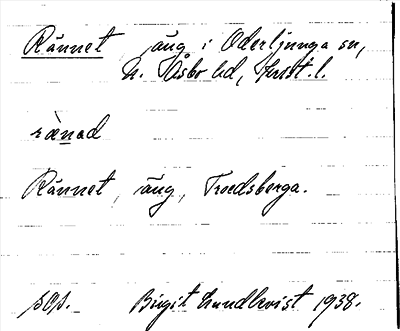 Rännet, äng i Oderljunga sn,
N. Åsbo hd, Krist. l.
rä̀nad
Rännet, äng, Troedsberga.
sep. Birgit Lundkvist 1938.